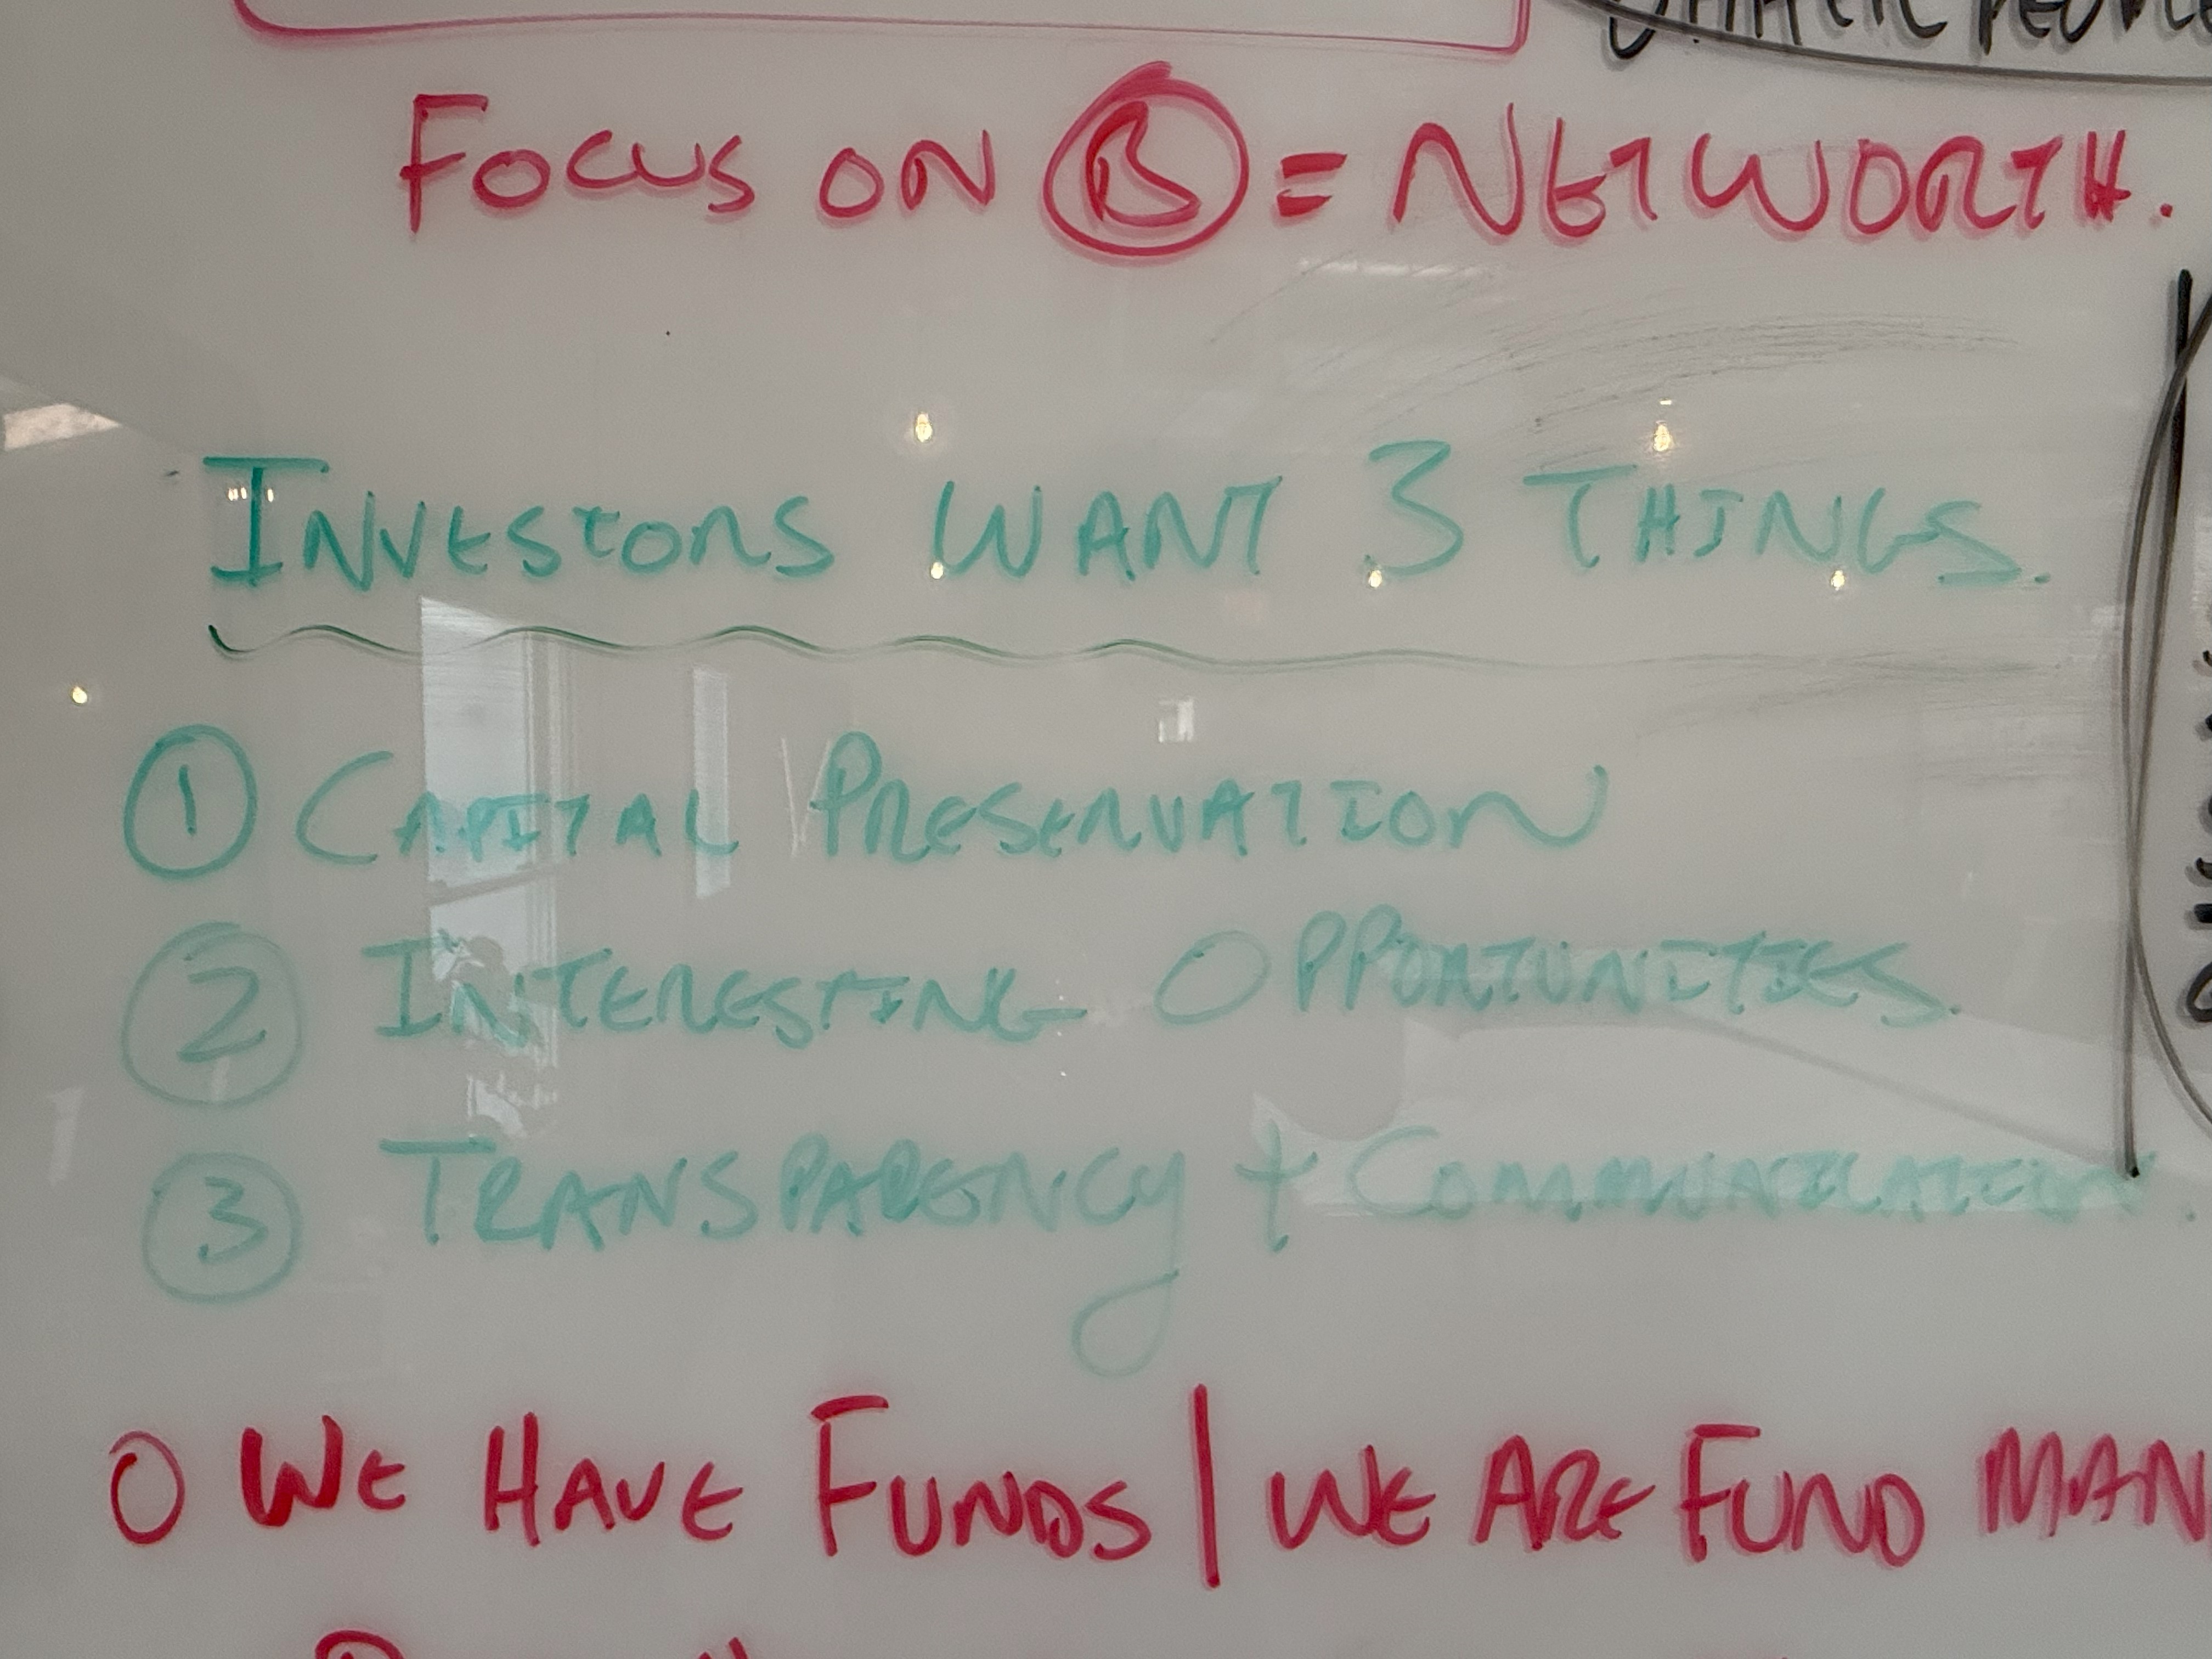 FOCUS ON B = NETWORTH.
INVESTORS WANT 3 THINGS.
1 CAPITAL PRESERVATION
2 INTERESTING OPPORTUNITIES.
3 TRANSPARENCY + COMMUNICATION.
O WE HAVE FUNDS | WE ARE FUND MAN